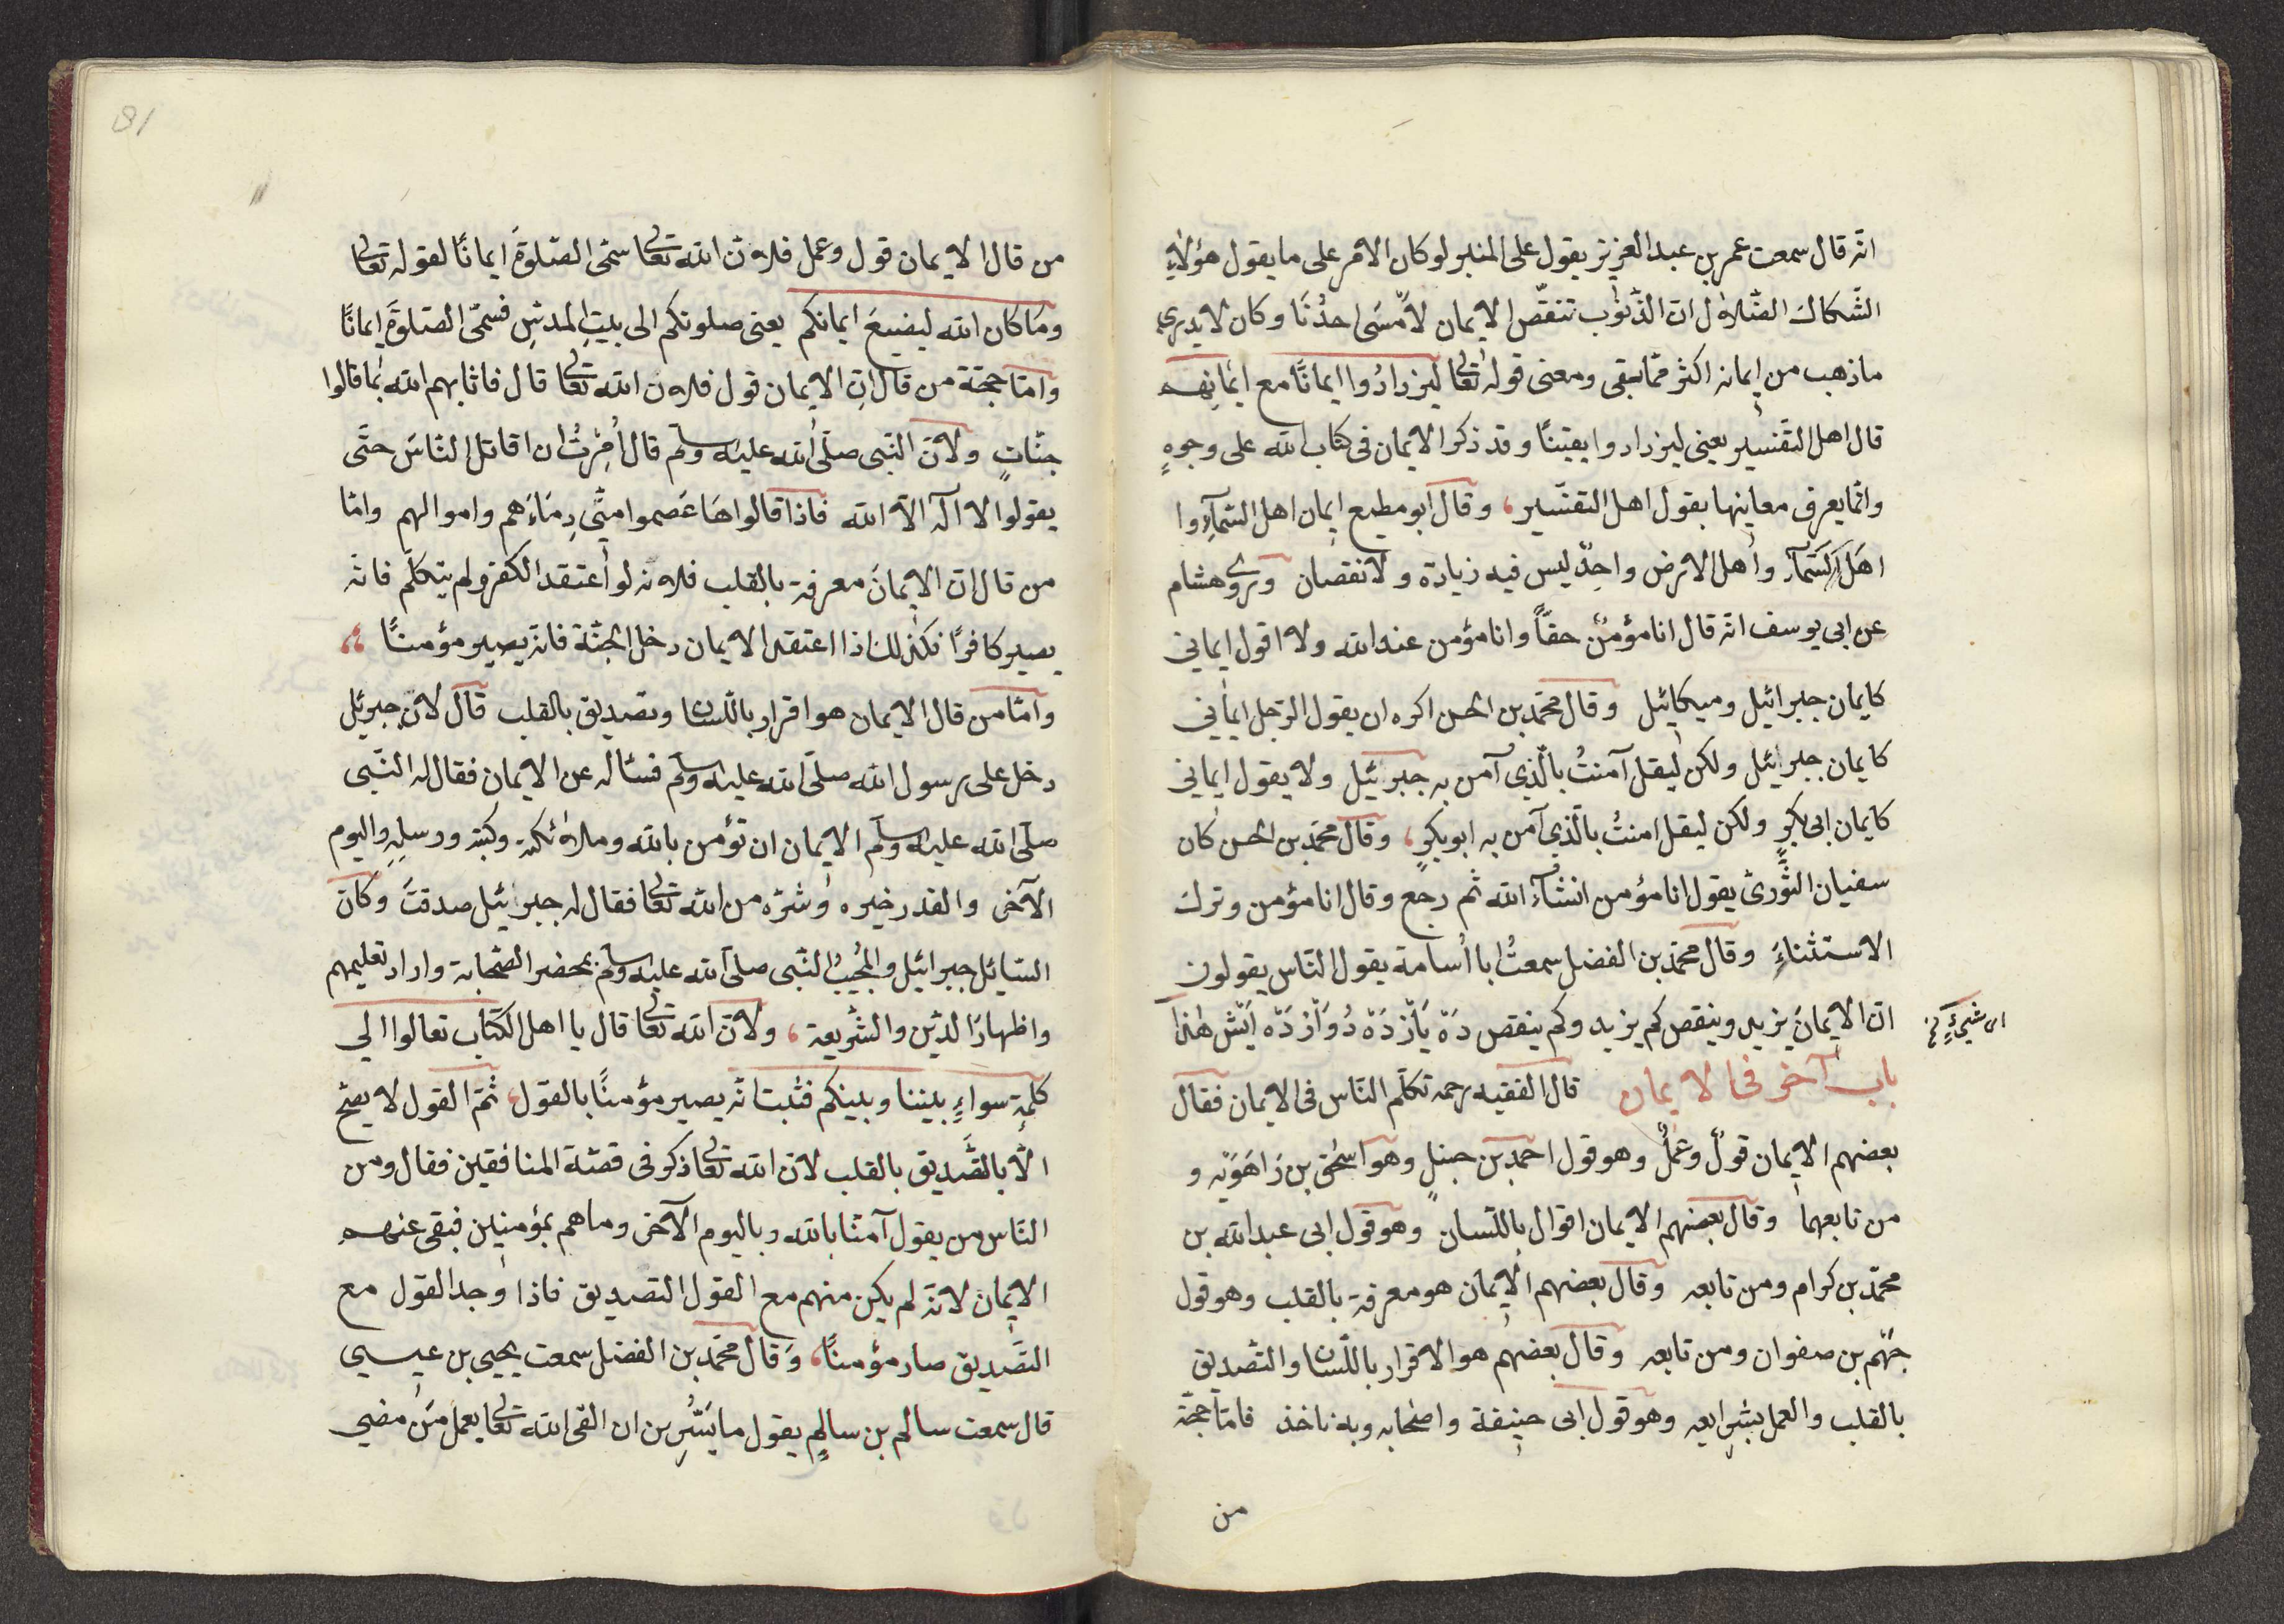 انّه قال سمعت عمر بن عبد العزيز يقول على المنبر لو كان الامر على ما يقول هؤلاءِ
الشّكاك الضّلاول ان الذّنوب تنقّص الايمان لامّسَى احدُنَا وكان لا يدرى
ما ذهب من ايمانه اكثر ممّا بقى ومعنى قوله تعالى ليزدادُوا ايمانًا مع ايمانِهم
قال اهل التفسير يعنى ليزدادوا يقينًا وقد ذكر الايمان فى كتاب الله على وجوهٍ
وانّما يعرف معاينها بقول اهل التفسير، وقال ابو مطيع ايمان اهل السّمآءِ وا
اهل السّمآء واهل الارض واحدٌ ليس فيه زيادة ولا نقصان وروى هشام
عن ابى يوسف انّه قال انا مؤمنٌ حقّاً وانا مؤمن عند الله ولا اقول ايمانى
كايمان جبرائيل وميكائيل وقال محمّد بن الحسن اكره ان يقول الرّجل ايمانى
كايمان جبرائيل ولكن ليقل آمنتُ بالّذى آمن به جبرئيل ولا يقول ايمانى
كايمان ابى بكرٍ ولكن ليقل امنتُ بالّذى آمن به ابو بكرٍ، وقال محمّد بن الحسن كان
سفيان الثّورىّ يقول انا مؤمن انشآء الله ثم رجع وقال انا مؤمن وترك
الاستثناءَ وقال محمّد بن الفضل سمعتُ ابا اُسامة يقول النّاس يقولون
انّ الايمانَ يزيد وينقص كم يزيد وكم ينقص دَه يَازْدَه دُوَازْدَه اَيْش هذا
اى شىءٍ نخ
باب آخر فى الايمان قال الفقيه رحمه تكلّم النّاس فى الايمان فقال
بعضهم الايمان قولٌ وعملٌ وهو قول احمد بن حنبلٍ وهو اسحٰق بن رَاهَوَيْه و
من تابعهما وقال بعضهم الايمان اقوال باللّسان وهو قول ابى عبد الله بن
محمّد بن كرام ومن تابعه وقال بعضهم الايمان هو معرفة بالقلب وهو قول
جهْم بن صفوان ومن تابعه وقال بعضهم هو الاقرار باللّسان والتّصديق
بالقلب والعمل بشرايعه وهو قول ابى حنيفة واصحابه وبه ناخذ فامّا حجّة
من
81
من قال الايمان قول وعمل فلاون الله تعالى سمّى الصّلوةَ ايمانًا لقوله تعالى
وما كان الله ليضيعَ ايمانكم يعنى صلوتكم الى بيتِ المقدس فسمّى الصّلوةَ ايمانًا
وامّا حجّة من قال انِ الايمان قول فلاون الله تعالى قال فاثابهم الله بما قالوا
جنّاتٍ ولانّ النّبى صلّى الله عليه وسلّم قال اُمِرْتُ ان اقاتل النّاسَ حتّى
يقولوا لا اله الّا الله فاذا قالوا هَا عَصموا منّى دِمَاءَهم واموالهم وامّا
من قال انّ الايمانَ معرفة بالقلب فلاونه لو اعتقد الكفر ولم يتكلّم فانّه
يصير كافرًا فكذلك اذا اعتقد الايمان دخل الجنّة فانّه يصير مؤمنًا،
وامّا من قال الايمان هو اقرار باللّسان وتصديق بالقلب قال لانّ جبرئيل
دخل على رسول الله صلّى الله عليه وسلّم فسئاله عن الايمان فقال له النّبى
صلّى الله عليه وسلّم الايمان ان تؤمن بالله وملاوئكته وكتبه ورسلِهِ واليوم
الآخر والقدر خيره وشرّه من الله تعالى فقال له جبرائيل صدقتَ وكان
السّائل جبرائيل والمجيبُ النّبى صلّى الله عليه وسلّم بمحضر الصّحابة واراد تعليمهم
واظهارَ الدّين والشّريعة، ولانّ الله تعالى قال يا اهل الكتاب تعالوا الى
كلمةٍ سواءٍ بيننا وبينكم فثبت انّه يصير مؤمنًا بالقول، ثمّ القول لا يصحّ
الّا بالتّصديق بالقلب لانّ الله تعالى ذكر فى قصّة المنافقين فقال ومن
النّاس من يقول آمنّا بالله وباليوم الآخر وما هم بمؤمنين فبقى عنهم
الايمان لانّه لم يكن منهم مع القول التصديق فاذا وجد القول مع
التّصديق صار مؤمنًا، وقال محمّد بن الفضل سمعت يحيى بن عيسى
قال سمعت سالم بن سالمٍ يقول ما يَسُّرِ بن ان القى الله تعالى بعمل مَن مضى